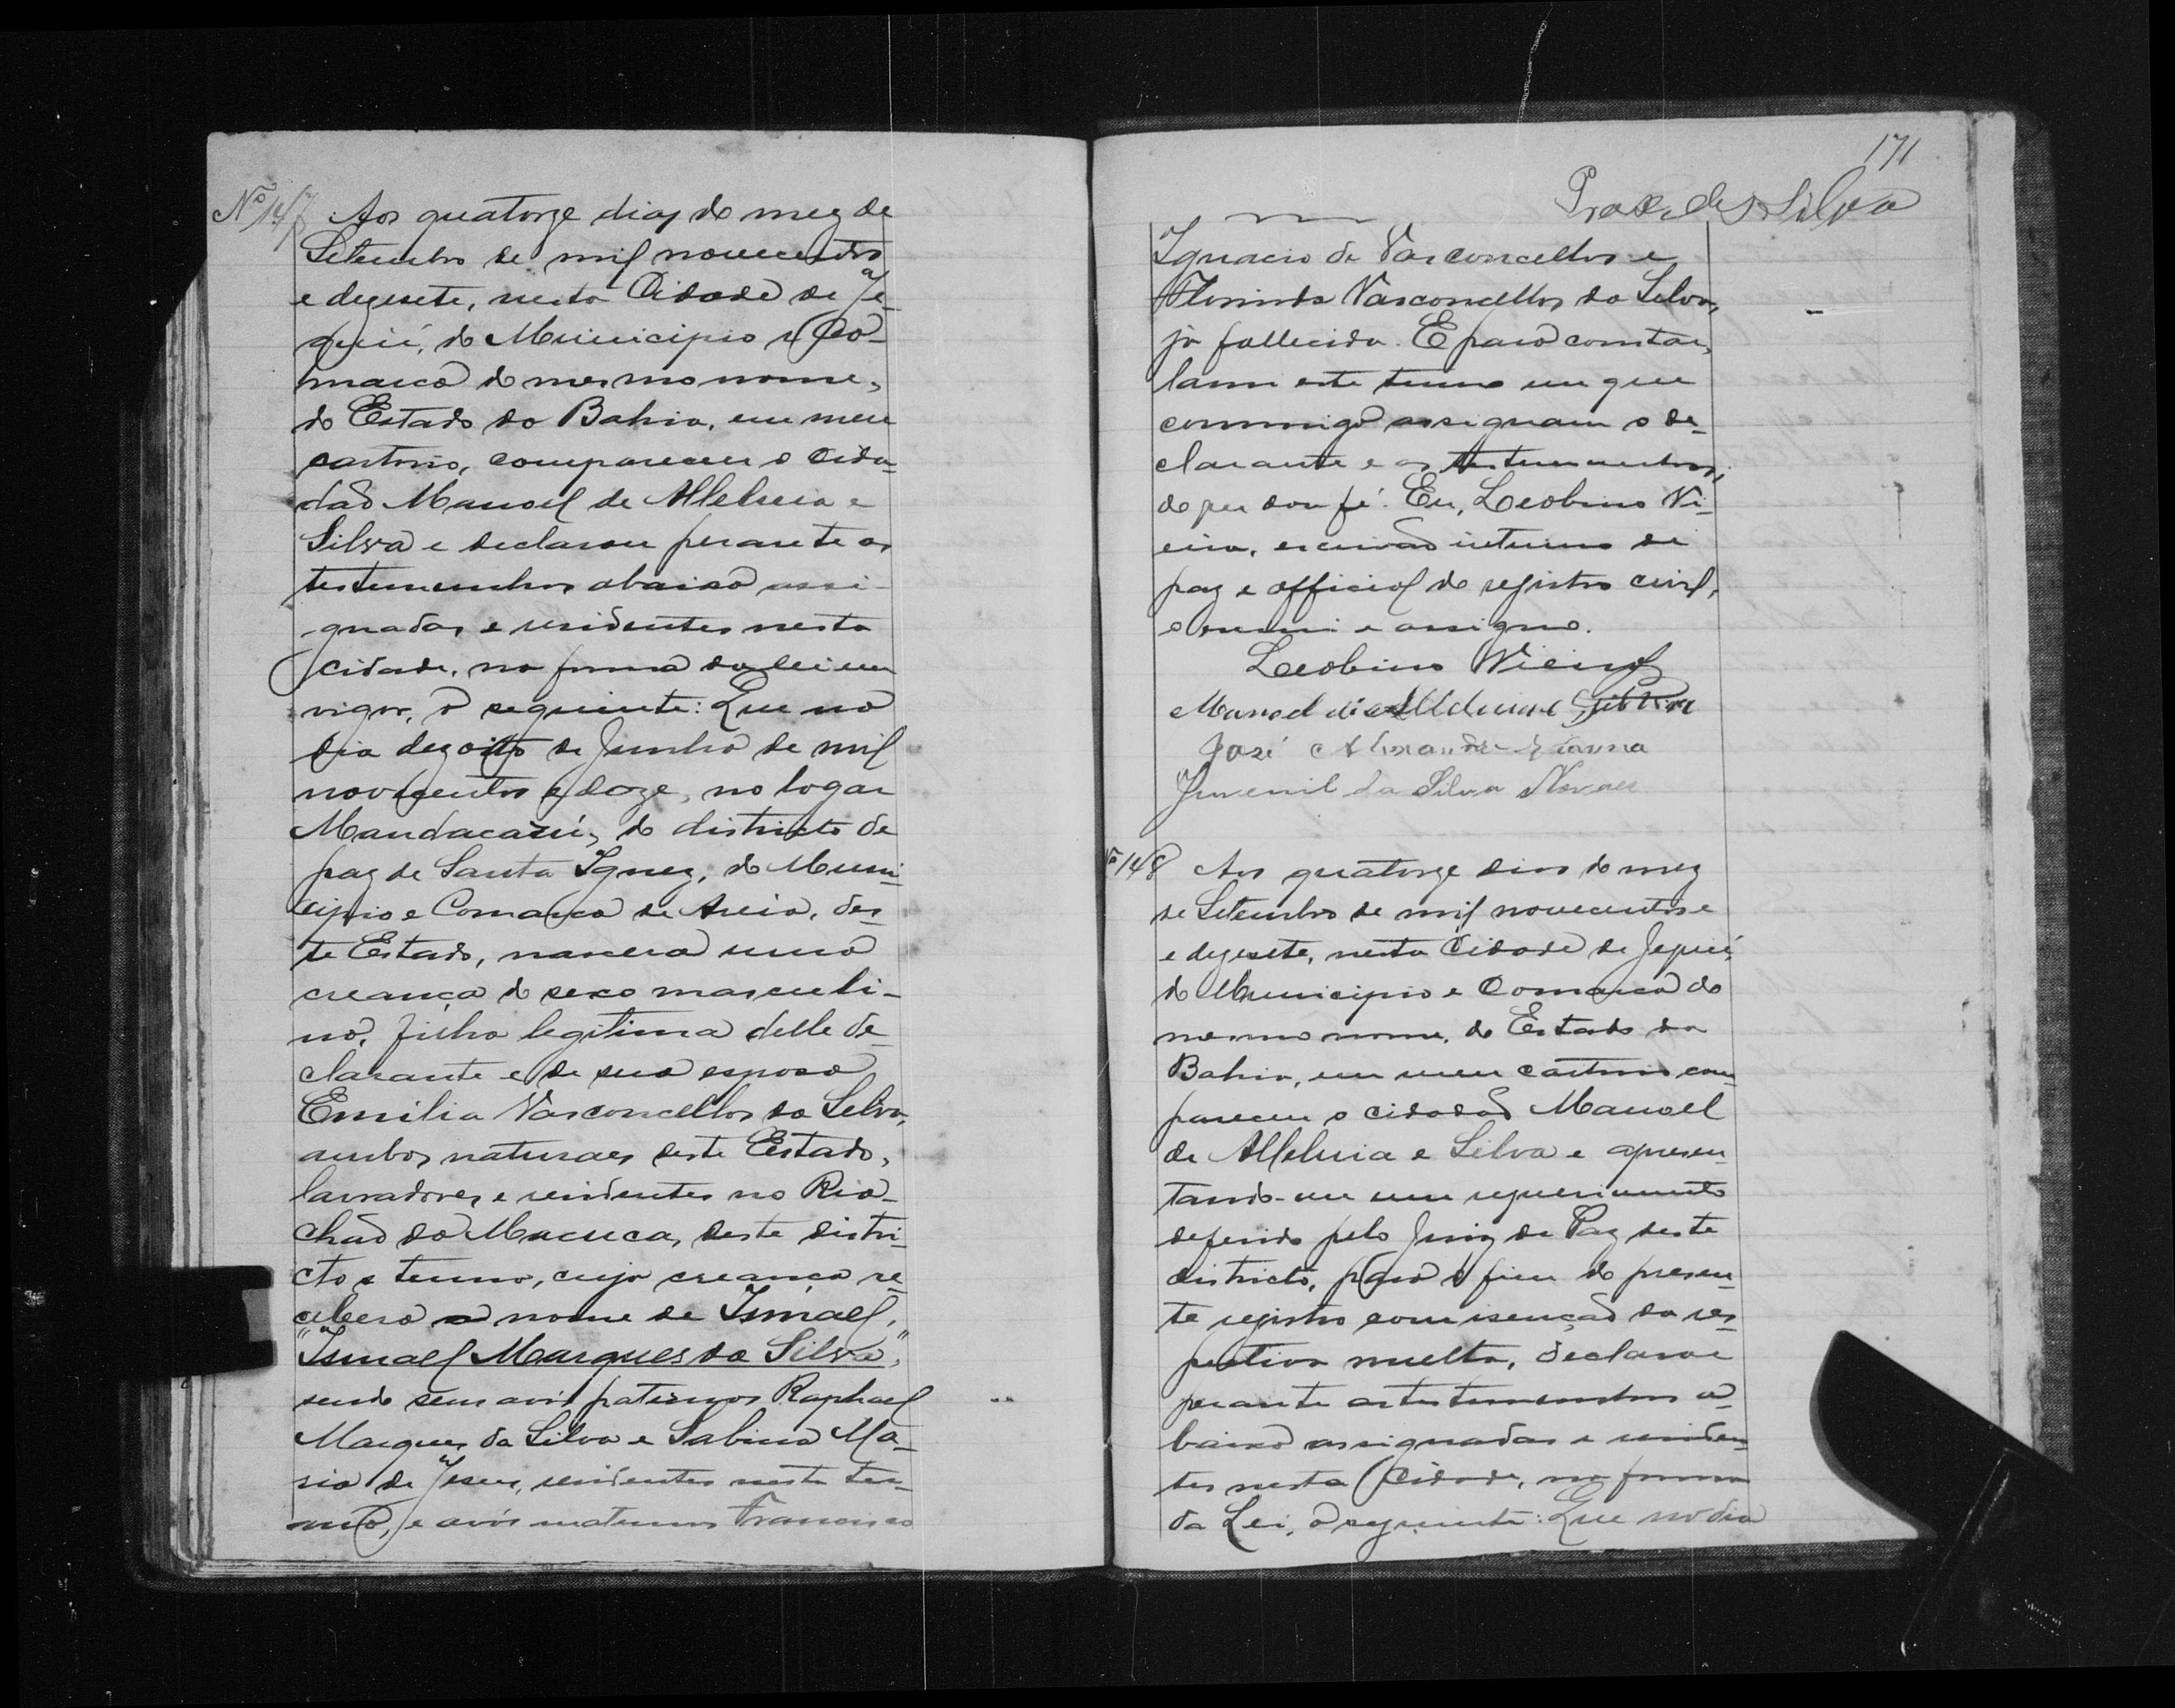 Nº 147 Aos quatorze dias do mez de
Setembro de mil novecentos
e dezesete, nesta Cidade de Je-
quié, do Municipio e Co-
marca do mesmo nome,
do Estado da Bahia, em meu
cartorio, compareceu o cida-
dão Manoel de Alleluia e
Silva e declarou perante as
testemunhas abaixo assi-
gnadas e residentes nesta
cidade, na forma da lei em
vigor, o seguinte: Que no
dia dezoito de Junho de mil
novecentos e doze, no logar
Mandacarú, do districto de
paz de Santa Ignez, do Muni-
cipio e Comarca de Areia, des-
te Estado, nascera uma
creança do sexo masculi-
no, filha legitima delle de-
clarante e de sua esposa
Emilia Vasconcellos da Silva,
ambos naturaes deste Estado,
lavradores e residentes no Ria-
chão da Macuca, deste distri-
cto e termo, cuja creança re-
cebera o nome de Ismael,
"Ismael Marques da Silva",
sendo seus avós paternos Raphael
Marques da Silva e Sabina Ma-
ria de Jesus, residentes neste ter-
mo, e avós maternos Francisco
171
da Silva
Ignacio de Vasconcellos e
Florinda Vasconcellos da Silva,
já fallecida. E para constar,
lavrei este termo em que
commigo assignam o de-
clarante e as testemunhas;
do que dou fé. Eu, Leobino Vi-
eira, escrivão interino de
paz e official do registro civil,
o escrevi e assigno.
Leobino Vieira
Manoel de Alleluia e Silva
José Alexandre Vianna
Juvenil da Silva Novaes
Nº 148 Aos quatorze dias do mez
de Setembro de mil novecentos e
e dezesete, nesta Cidade de Jequié,
do Municipio e Comarca do
mesmo nome, do Estado da
Bahia, em meu cartorio com-
pareceu o cidadão Manoel
de Alleluia e Silva e apresen-
tando-me um requerimento
deferido pelo Juiz de Paz deste
districto, para o fim do presen-
te registro com isenção da res-
pectiva multa, declarou
perante as testemunhas a-
baixo assignadas e residen-
tes nesta Cidade, na forma
da Lei, o seguinte: Que no dia